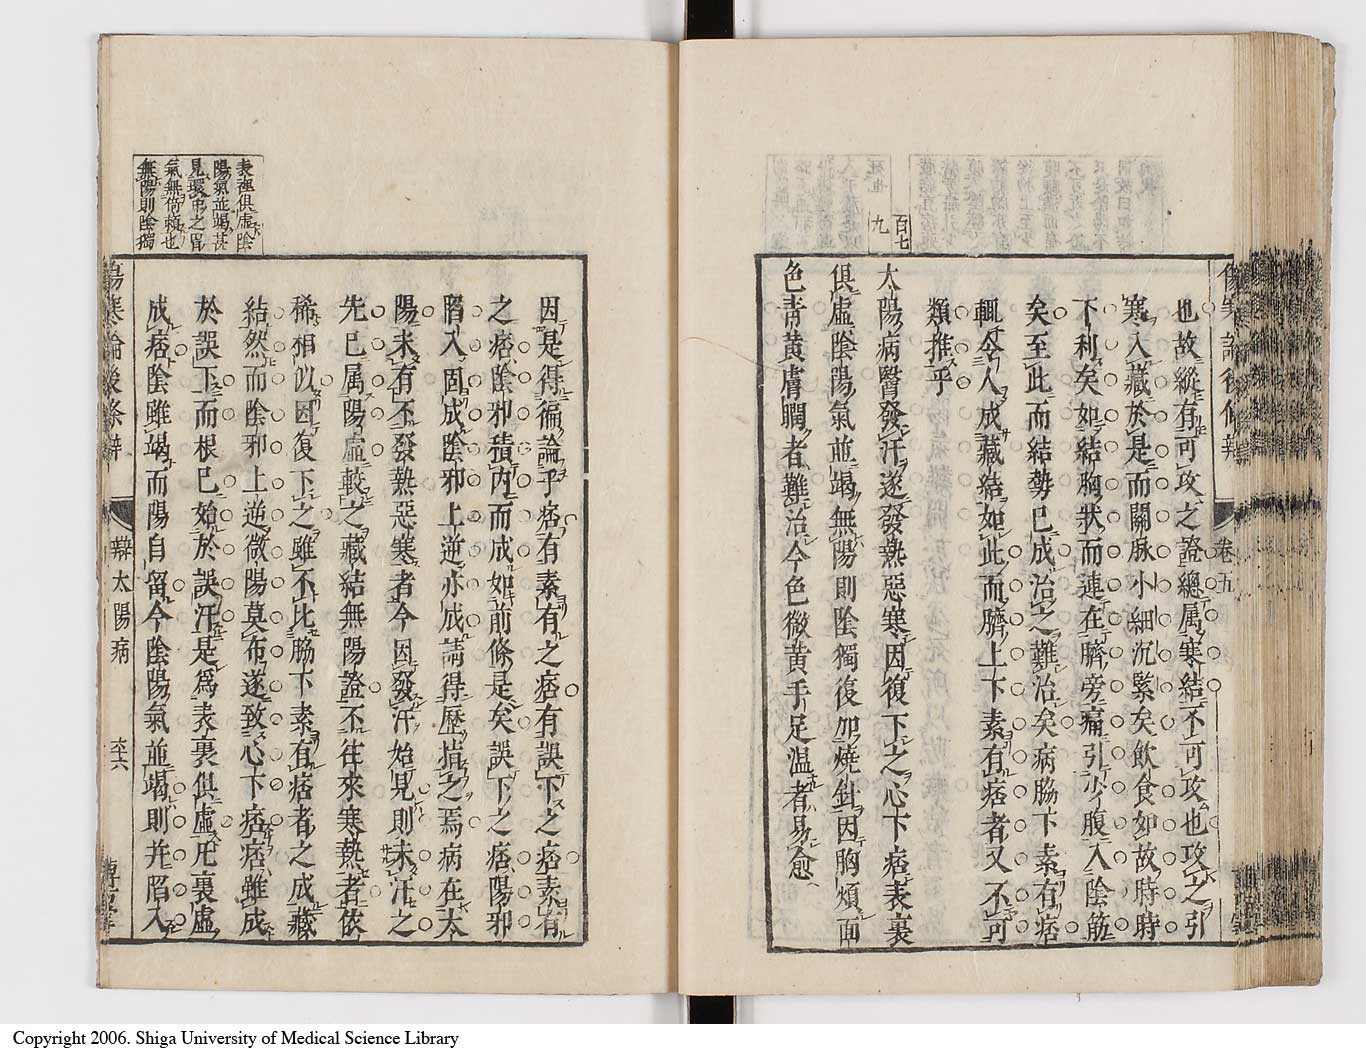 傷寒論後條辨
卷五
也故縱有可攻之證總属寒結不可攻也攻之引
寒入藏於是而關脉小細沉緊矣飲食如故時時
下利矣如結胸狀而連在臍旁痛引少腹入陰筋
矣至此而結勢已成治之難治矣病脇下素有痞
輒令人成藏結如此而臍上下素有痞者又不可
類推乎
百七
九
太陽病醫發汗遂發熱惡寒因復下之心下痞表裏
俱虛陰陽氣並竭無陽則陰獨復加燒針因胸煩面
色青黄膚瞤者難治今色微黄手足温者易愈
表裡俱虛陰
陽氣並竭甚
見悞下之胃
氣無倚藉也
無陽則陰獨
因是得徧論乎痞有素有之痞有誤下之痞素有
之痞陰邪積内而成如前條是矣誤下之痞陽邪
陷入固成陰邪上逆亦成請得歷揹之焉病在太
陽未有不發熱惡寒者今因發汗始見則未汗之
先已属陽虛較之藏結無陽證不往來寒熱者依
稀相似因復下之雖不比脇下素有痞者之成藏
結然而陰邪上逆微陽莫布遂致心下痞痞雖成
於誤下而根已始於誤汗是爲表裏俱虛凡裏虛
成痞陰雖竭而陽自留今陰陽氣並竭則并陷入
傷寒論後條辨
辯太陽病
六